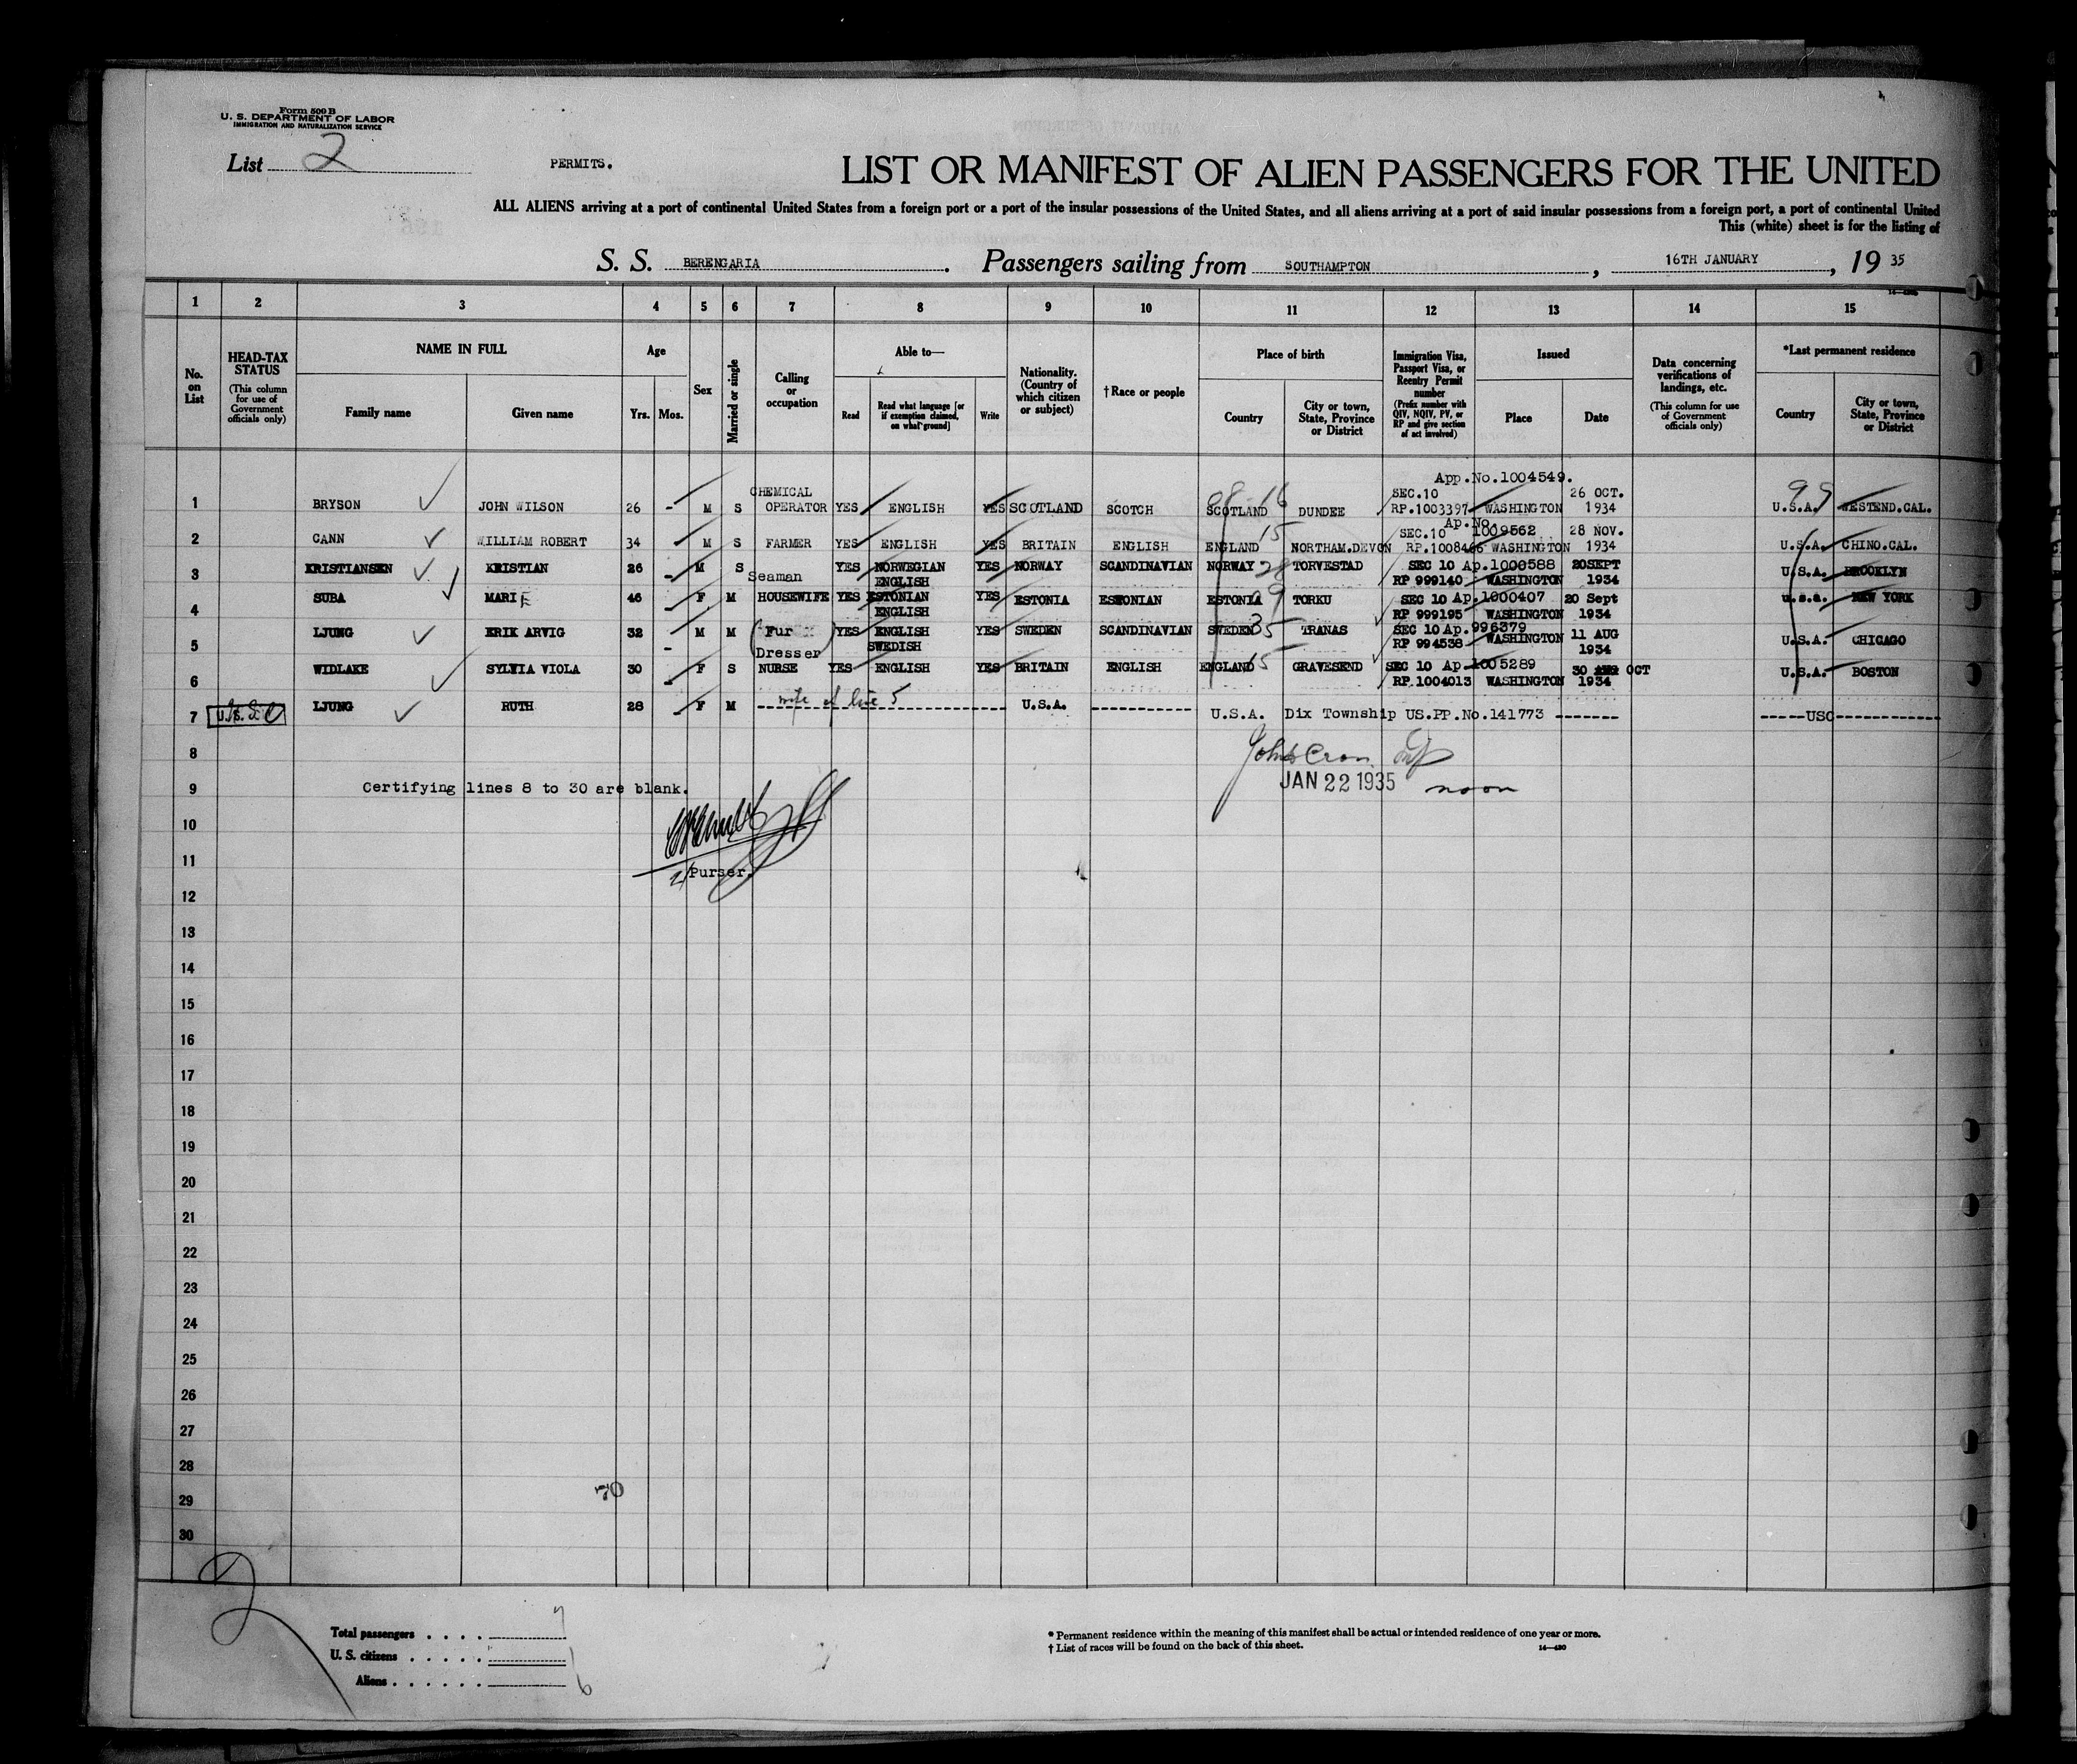 Form 500 B
U. S. DEPARTMENT OF LABOR
IMMIGRATION AND NATURALIZATION SERVICE
List 2
PERMITS.
LIST OR MANIFEST OF ALIEN PASSENGERS FOR THE UNITED
ALL ALIENS arriving at a port of continental United States from a foreign port or a port of the insular possessions of the United States, and all aliens arriving at a port of said insular possessions from a foreign port, a port of continental United
This (white) sheet is for the listing of
S. S. BERENGARIA. Passengers sailing from SOUTHAMPTON, 16TH JANUARY, 19 35
1 2 3 4 5 6 7 8 9 10 11 12 13 14 15
No. on List
HEAD-TAX STATUS
(This column for use of Government officials only)
NAME IN FULL
Family name
Given name
Age
Yrs. Mos.
Sex
Married or single
Calling or occupation
Able to—
Read
Read what language [or if exemption claimed, on what ground]
Write
Nationality. (Country of which citizen or subject)
† Race or people
Place of birth
Country
City or town, State, Province or District
Immigration Visa, Passport Visa, or Reentry Permit number
(Prefix number with QIV, NQIV, PV, or RP and give section of act involved)
Issued
Place
Date
Data concerning verifications of landings, etc.
(This column for use of Government officials only)
*Last permanent residence
Country
City or town, State, Province or District
App.No.1004549.
1 BRYSON JOHN WILSON 26 - M S CHEMICAL OPERATOR YES ENGLISH YES SCOTLAND SCOTCH SCOTLAND 16 DUNDEE SEC.10 RP.1003397 WASHINGTON 26 OCT. 1934 U.S.A. 99 WESTEND.CAL.
2 CANN WILLIAM ROBERT 34 - M S FARMER YES ENGLISH YES BRITAIN ENGLISH ENGLAND 15 NORTHAM.DEVON SEC.10 Ap.No. 1009562 RP.1008466 WASHINGTON 28 NOV. 1934 U.S.A. CHINO.CAL.
3 KRISTIANSEN KRISTIAN 26 - M S Seaman YES NORWEGIAN ENGLISH YES NORWAY SCANDINAVIAN NORWAY 28 TORVESTAD SEC 10 Ap.1000588 RP 999140 WASHINGTON 20SEPT 1934 U.S.A. BROOKLYN
4 SUBA MARIE 46 - F M HOUSEWIFE YES ESTONIAN ENGLISH YES ESTONIA ESTONIAN ESTONIA 09 TORKU SEC 10 Ap.1000407 RP 999195 WASHINGTON 20 Sept 1934 U.S.A. NEW YORK
5 LJUNG ERIK ARVIG 32 - M M (Fur Dresser) YES ENGLISH SWEDISH YES SWEDEN SCANDINAVIAN SWEDEN 35 TRANAS SEC 10 Ap.996379 RP 994538 WASHINGTON 11 AUG 1934 U.S.A. CHICAGO
6 WIDLAKE SYLVIA VIOLA 30 - F S NURSE YES ENGLISH YES BRITAIN ENGLISH ENGLAND 15 GRAVESEND SEC 10 Ap 1005289 RP.1004013 WASHINGTON 30 AUG OCT 1934 U.S.A. BOSTON
7 U.S.C LJUNG RUTH 28 - F M wife of line 5 U.S.A. U.S.A. Dix Township US.PP.No.141773 ------- -----USC-----
8
9 Certifying lines 8 to 30 are blank.
JAN 22 1935 noon
10
11 Purser.
12
13
14
15
16
17
18
19
20
21
22
23
24
25
26
27
28
29 70
30
2
Total passengers . . . . 7
U. S. citizens . . . . . 1
Aliens . . . . . . 6
* Permanent residence within the meaning of this manifest shall be actual or intended residence of one year or more.
† List of races will be found on the back of this sheet. 14—430